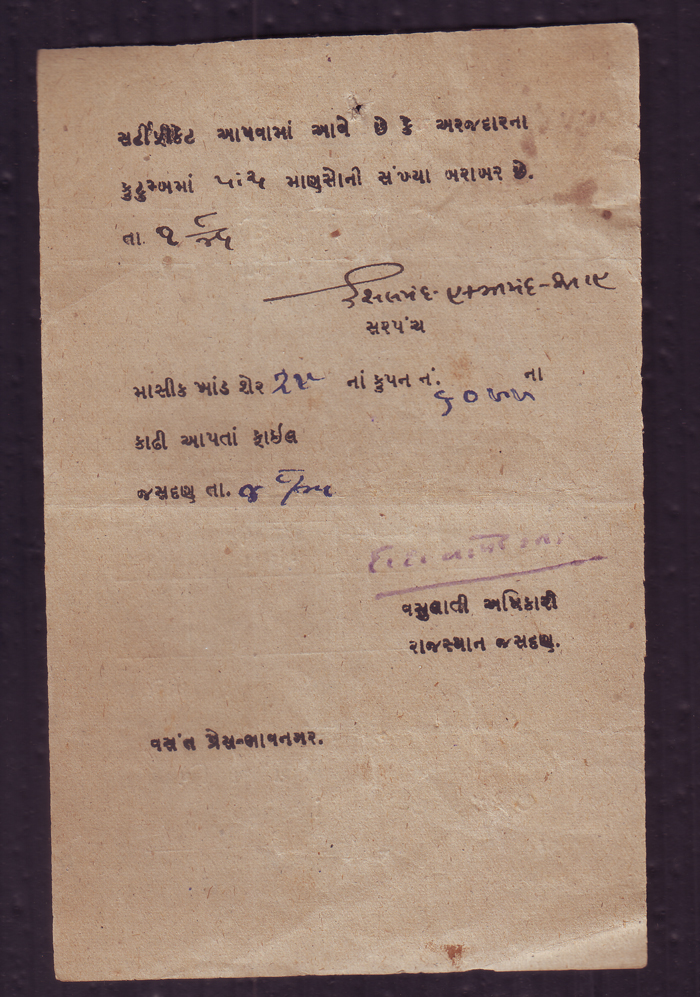 સર્ટીફીકેટ આપવામાં આવે છે કે અરજદારના
કુટુમ્બમાં પાંચ માણુસોની સંખ્યા બરાબર છે.
તા.
સરપંચ
માસીક ખાંડ શેર નાં કુપન નં. ના
કાઢી આપતાં ફાઇલ
જસદણુ તા.
વસુલાતી અધિકારી
રાજસ્થાન જસદણુ.
વસંત પ્રેસ-ભાવનગર.